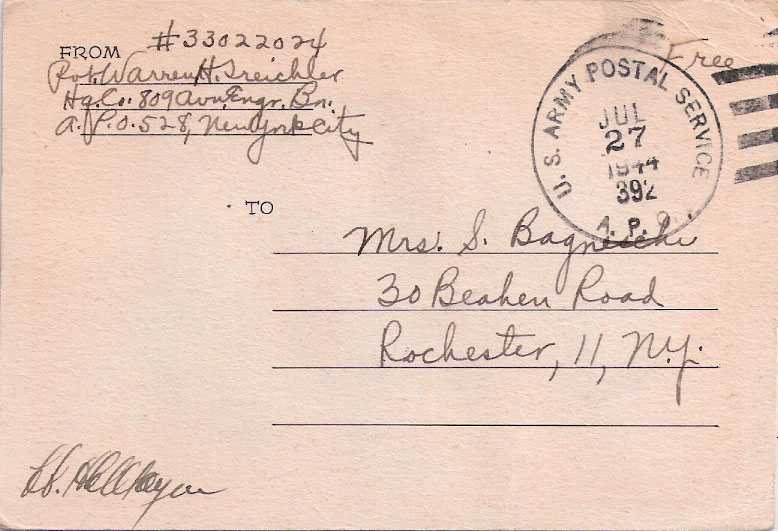 FROM #33022024
Pvt. Warren H. Treichler
Hq. Co. 809 Avn. Engr. Bn.
A.P.O. 528, New York City
Free
U. S. ARMY POSTAL SERVICE
JUL
27
1944
392
A. P. O.
TO
Mrs. S.
30 Beahen Road
Rochester, 11, N.Y.
Lt.